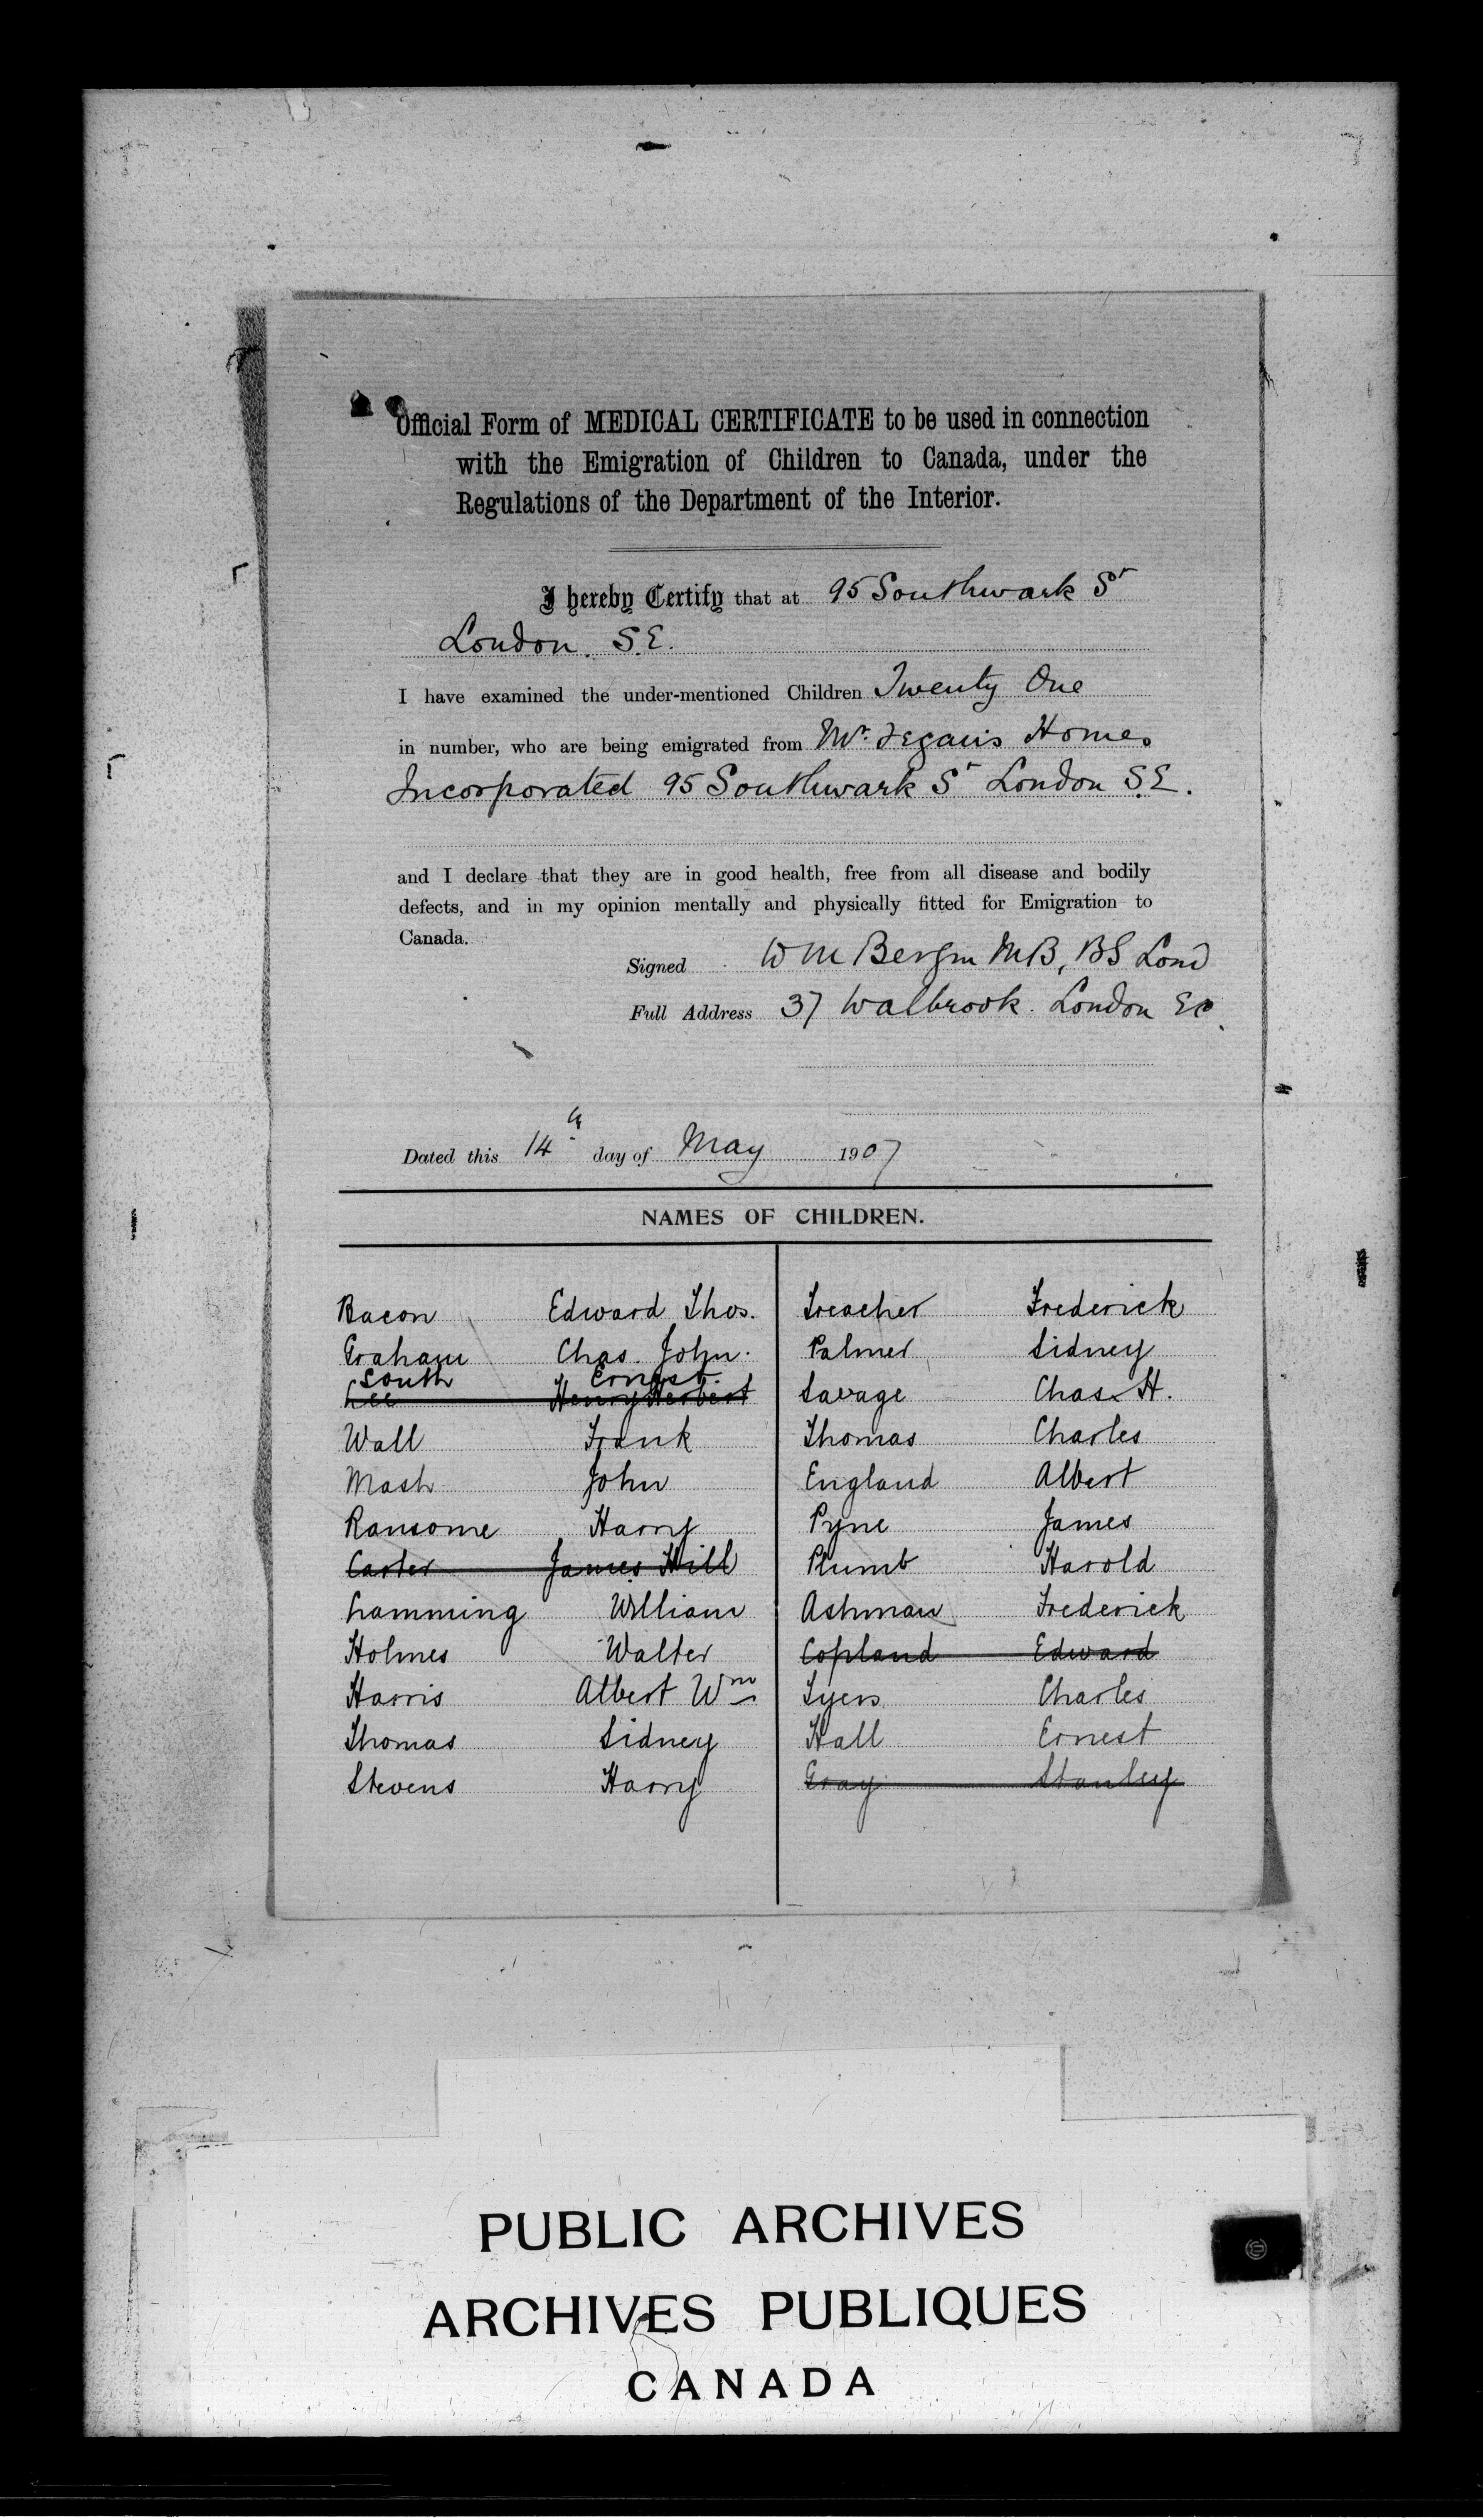 Official Form of MEDICAL CERTIFICATE to be used in connection
with the Emigration of Children to Canada, under the
Regulations of the Department of the Interior.
I hereby Certify that at 95 Southwark St
London. S.E.
I have examined the under-mentioned Children Twenty One
in number, who are being emigrated from Mr. Fegan's Homes
Incorporated 95 Southwark St London S.E.
and I declare that they are in good health, free from all disease and bodily
defects, and in my opinion mentally and physically fitted for Emigration to
Canada.
Signed W M MB, BS Lond
Full Address 37 Walbrook. London EC
Dated this 14th day of May 1907
NAMES OF CHILDREN.
Bacon Edward Thos.
Graham Chas. John.
South Ernest.
Lee Henry Herbert
Wall Frank
Mash John
Ransome Harry
Carter James Hill
Lamming William
Holmes Walter
Harris Albert Wm
Thomas Sidney
Stevens Harry
Treacher Frederick
Palmer Sidney
Savage Chas. H.
Thomas Charles
England Albert
Pyne James
Plumb Harold
Ashman Frederick
Copland Edward
Tyers Charles
Hall Ernest
Gray Stanley
PUBLIC ARCHIVES
ARCHIVES PUBLIQUES
CANADA